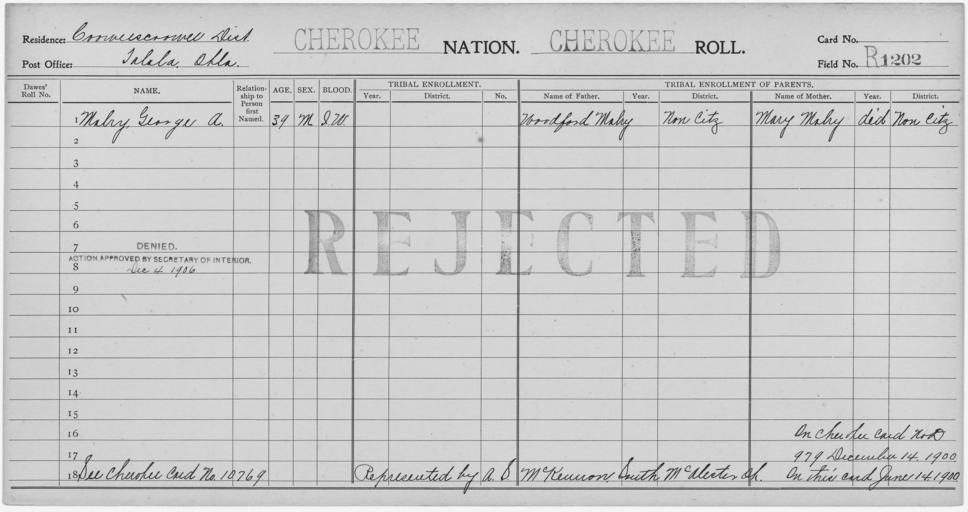 Residence: Cooweescoowee Dist. CHEROKEE NATION. CHEROKEE ROLL. Card No.
Post Office: Talala, Okla. Field No. R1202
Dawes' Roll No. NAME. Relationship to Person first Named. AGE. SEX. BLOOD. TRIBAL ENROLLMENT. TRIBAL ENROLLMENT OF PARENTS.
Year. District. No. Name of Father. Year. District. Name of Mother. Year. District.
1 Mabry, George A. 39 M. I.W. Woodford Mabry Non Citz Mary Mabry did Non Citz
2
3
4
5
6
REJECTED
DENIED.
7
ACTION APPROVED BY SECRETARY OF INTERIOR.
8 Dec 4 1906
9
10
11
12
13
14
15
16 On Cherokee Card No D
17 979 December 14, 1900
18 See Cherokee Card No. 10769 Represented by A. S. McKennon South McAlester On this card June 14, 1900